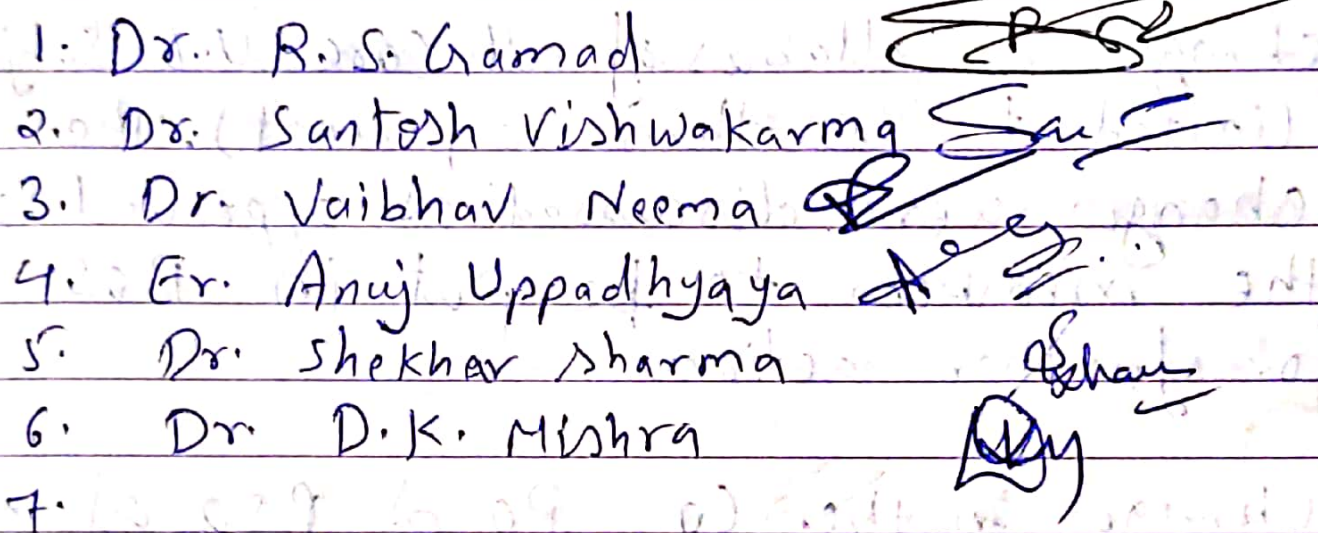 1. Dr. R. S. Gamad
2. Dr. Santosh Vishwakarma
3. Dr. Vaibhav Neema
4. Er. Anuj Uppadhyaya
5. Dr. Shekhar Sharma
6. Dr. D. K. Mishra
7.